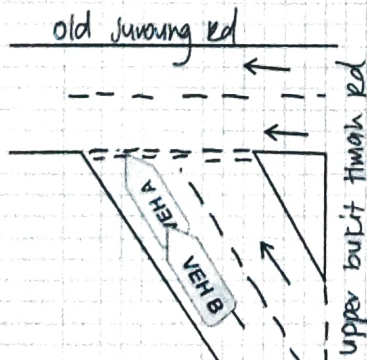 old Jurorung Rd
VEH A
VEH B
upper bukit timah Rd